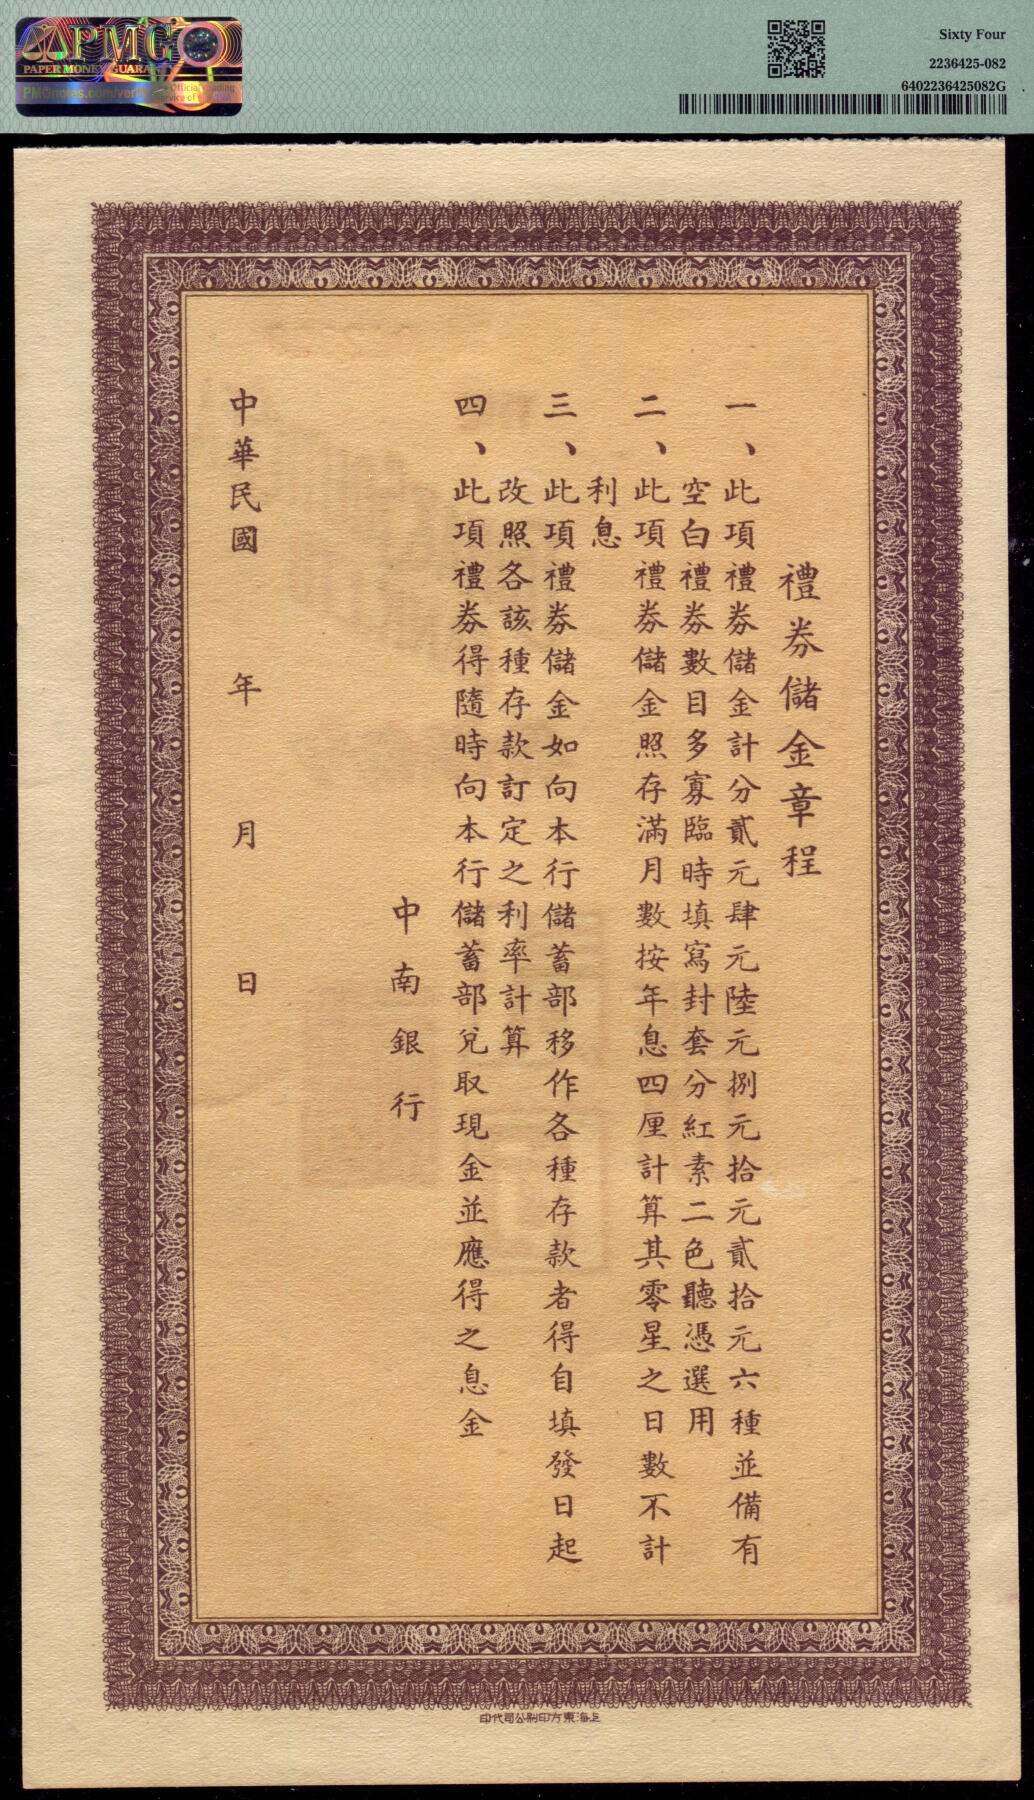 PMG
PAPER MONEY GUARA
PMGnotes.com/verify
Sixty Four
2236425-082
6402236425082G
禮券儲金章程
一、此項禮券儲金計分貳元肆元陸元捌元拾元貳拾元六種並備有
空白禮券數目多寡臨時填寫封套分紅素二色聽憑選用
二、此項禮券儲金照存滿月數按年息四厘計算其零星之日數不計
利息
三、此項禮券儲金如向本行儲蓄部移作各種存款者得自填發日起
改照各該種存款訂定之利率計算
四、此項禮券得隨時向本行儲蓄部兌取現金並應得之息金
中南銀行
中華民國 年 月 日
上海東方印刷公司代印